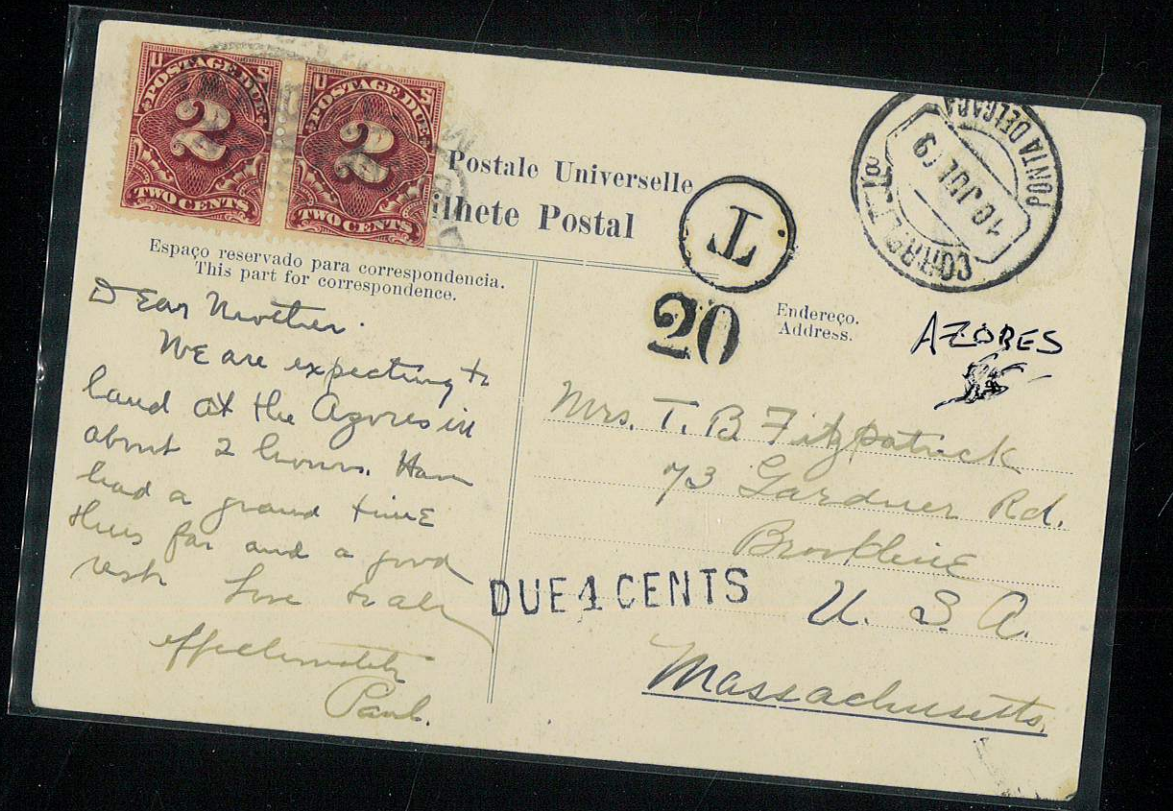 U S
POSTAGE DUE
2
TWO CENTS
U S
POSTAGE DUE
2
TWO CENTS
Postale Universelle
ilhete Postal
T
20
CORREI
10 JUL 09
PONTA DELGADA
Espaço reservado para correspondencia.
This part for correspondence.
Endereço.
Address.
AZORES
Dear Mother.
We are expecting to
land at the Azores in
about 2 hours. Have
had a grand time
thus far and a good
rest. Love to all
affectionately
Paul.
Mrs. T. B Fitzpatrick
73 Gardner Rd.
Brookline
U. S. A.
Massachusetts.
DUE 4 CENTS